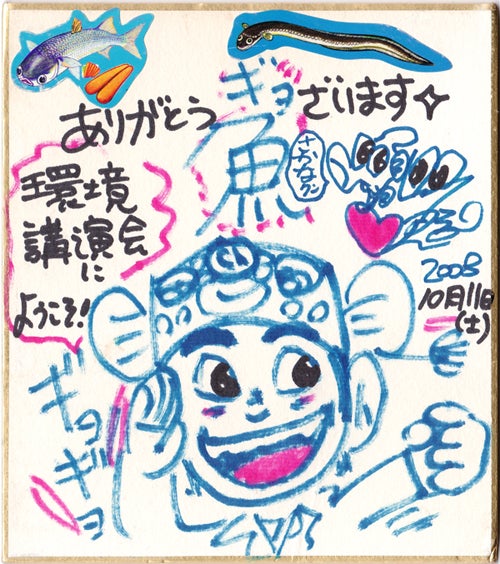 ありがとう ギョ魚 ざいます☆
さかなクン
環境
講演会
に
ようこそ!
2008
10月11日
(土)
ギョギョ